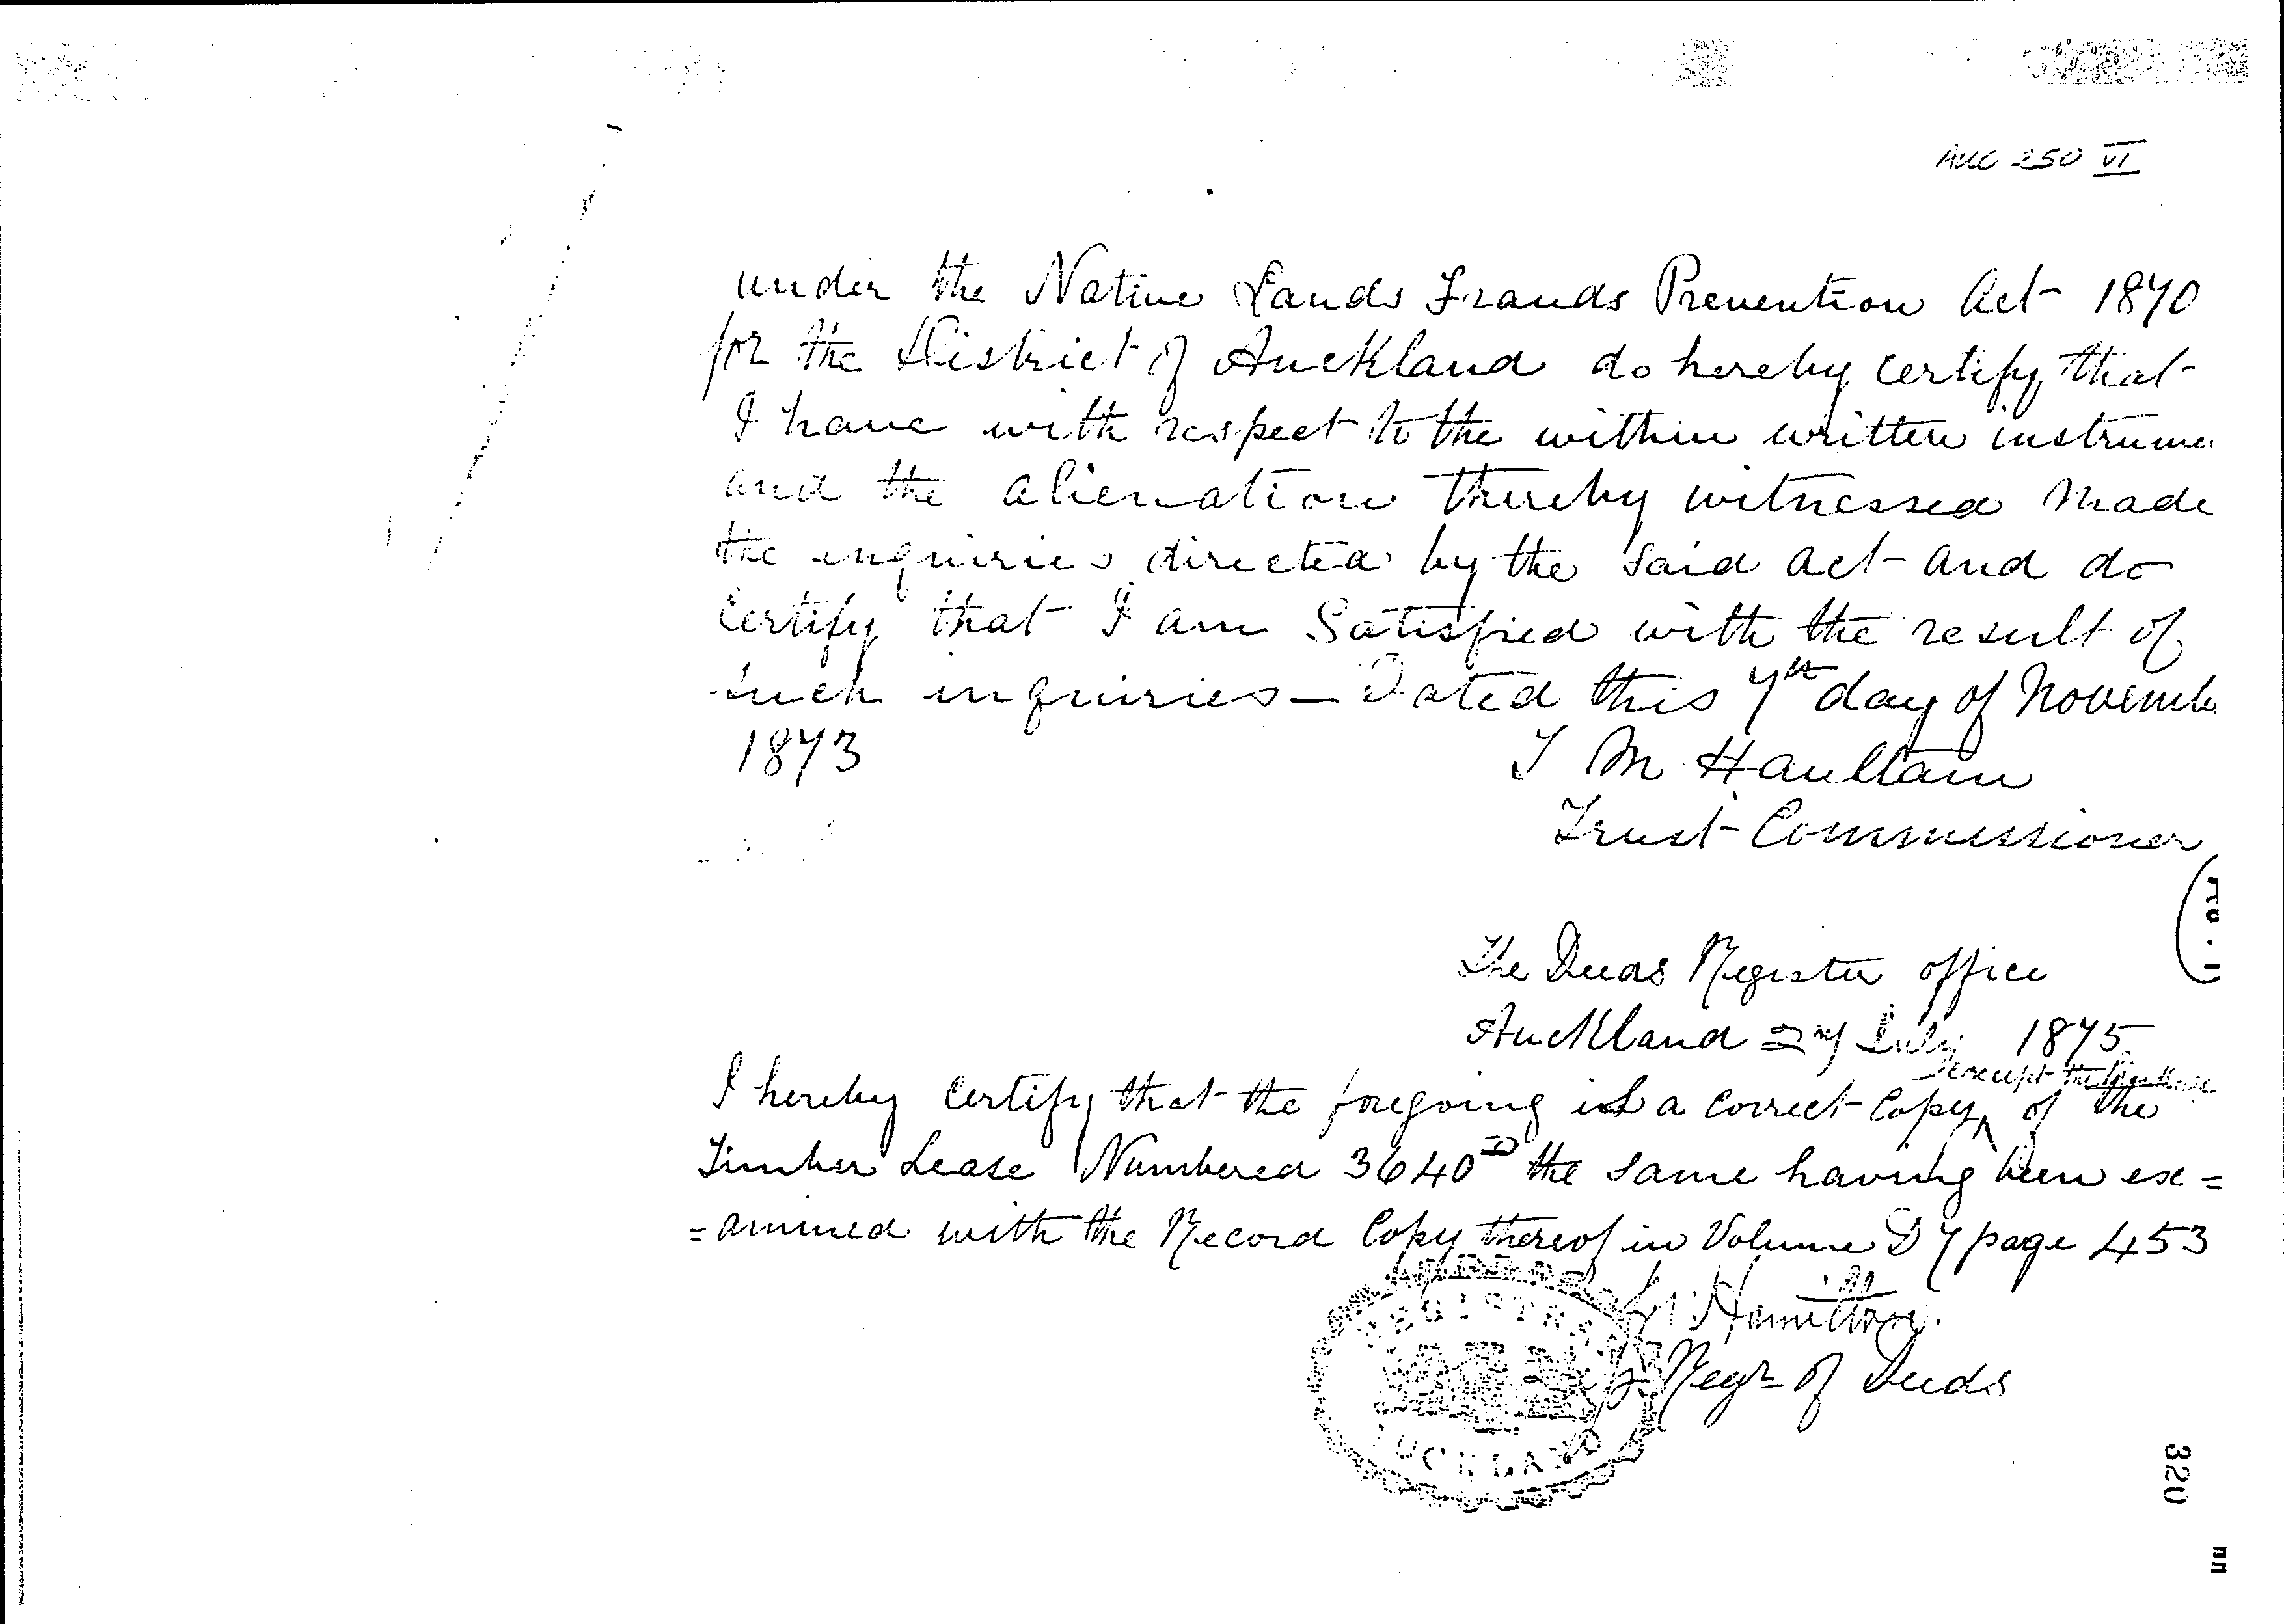 AUC 250 VI
under the Native Lands Frauds Prevention Act 1870
for the District of Auckland do hereby certify that
I have with respect to the within written instrume
and the alienation thereby witnessed made
the inquiries directed by the said act and do
Certify that I am Satisfied with the result of
such inquiries — Dated this 7th day of Novemb
1873
T M Haultain
Trust Commissioner
The Deeds Register office
Auckland 2nd July 1875
except the
I hereby Certify that the foregoing is a correct Copy of the
Timber Lease Numbered 3640 D the same having been ex=
=amined with the Record Copy thereof in Volume D 7 page 453
Hamilton.
Regr of Deeds
REGISTRAR
AUCKLAND
320